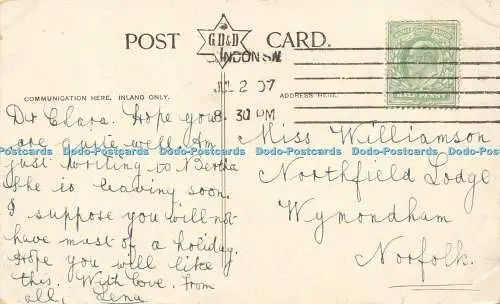 POST CARD.
G.D.&D.
LONDON S.W
8.30 PM
COMMUNICATION HERE. INLAND ONLY.
ADDRESS HERE.
Dr Clara. Hope you
are quite well. Am
just writing to Bertha
she is leaving soon.
I suppose you will not
have much of a holiday.
Hope you will like
this. With love. From
all, Lena
Miss Williamson
Northfield Lodge
Wymondham
Norfolk.
Dodo-Postcards Dodo-Postcards Dodo-Postcards Dodo-Postcards Dodo-Postcards Dodo-Postcards